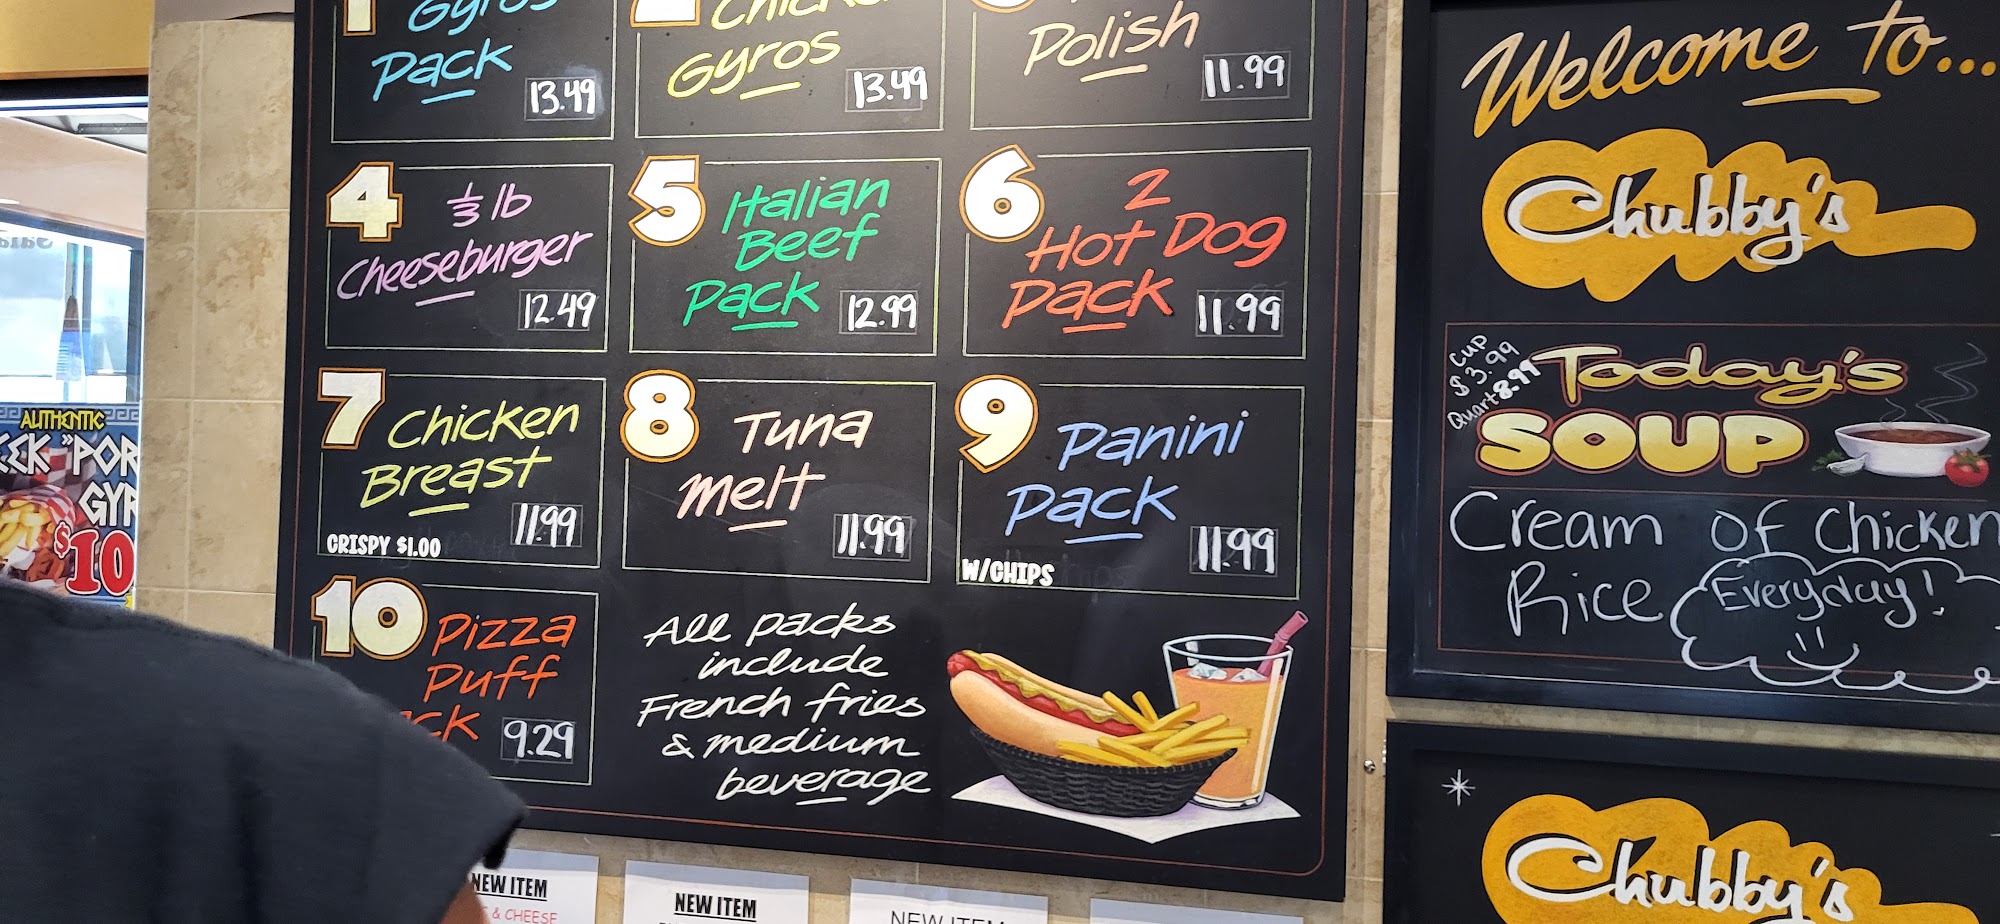 1 Gyros
Pack
13.49
2 Chicken
Gyros
13.49
Polish
11.99
4 1/3 lb
Cheeseburger
12.49
5 Italian
Beef
Pack
12.99
6 2
Hot Dog
Pack
11.99
7 Chicken
Breast
11.99
CRISPY $1.00
8 Tuna
Melt
11.99
9 Panini
Pack
11.99
W/CHIPS
10 Pizza
Puff
ck
9.29
All packs
include
French fries
& medium
beverage
Welcome to...
Chubby's
Cup
$3.99
Quart 8.99
Today's
SOUP
Cream of Chicken
Rice
Everyday!
Chubby's
AUTHENTIC
EEK "POR
GYR
$10
NEW ITEM
& CHEESE
NEW ITEM
NEW ITEM